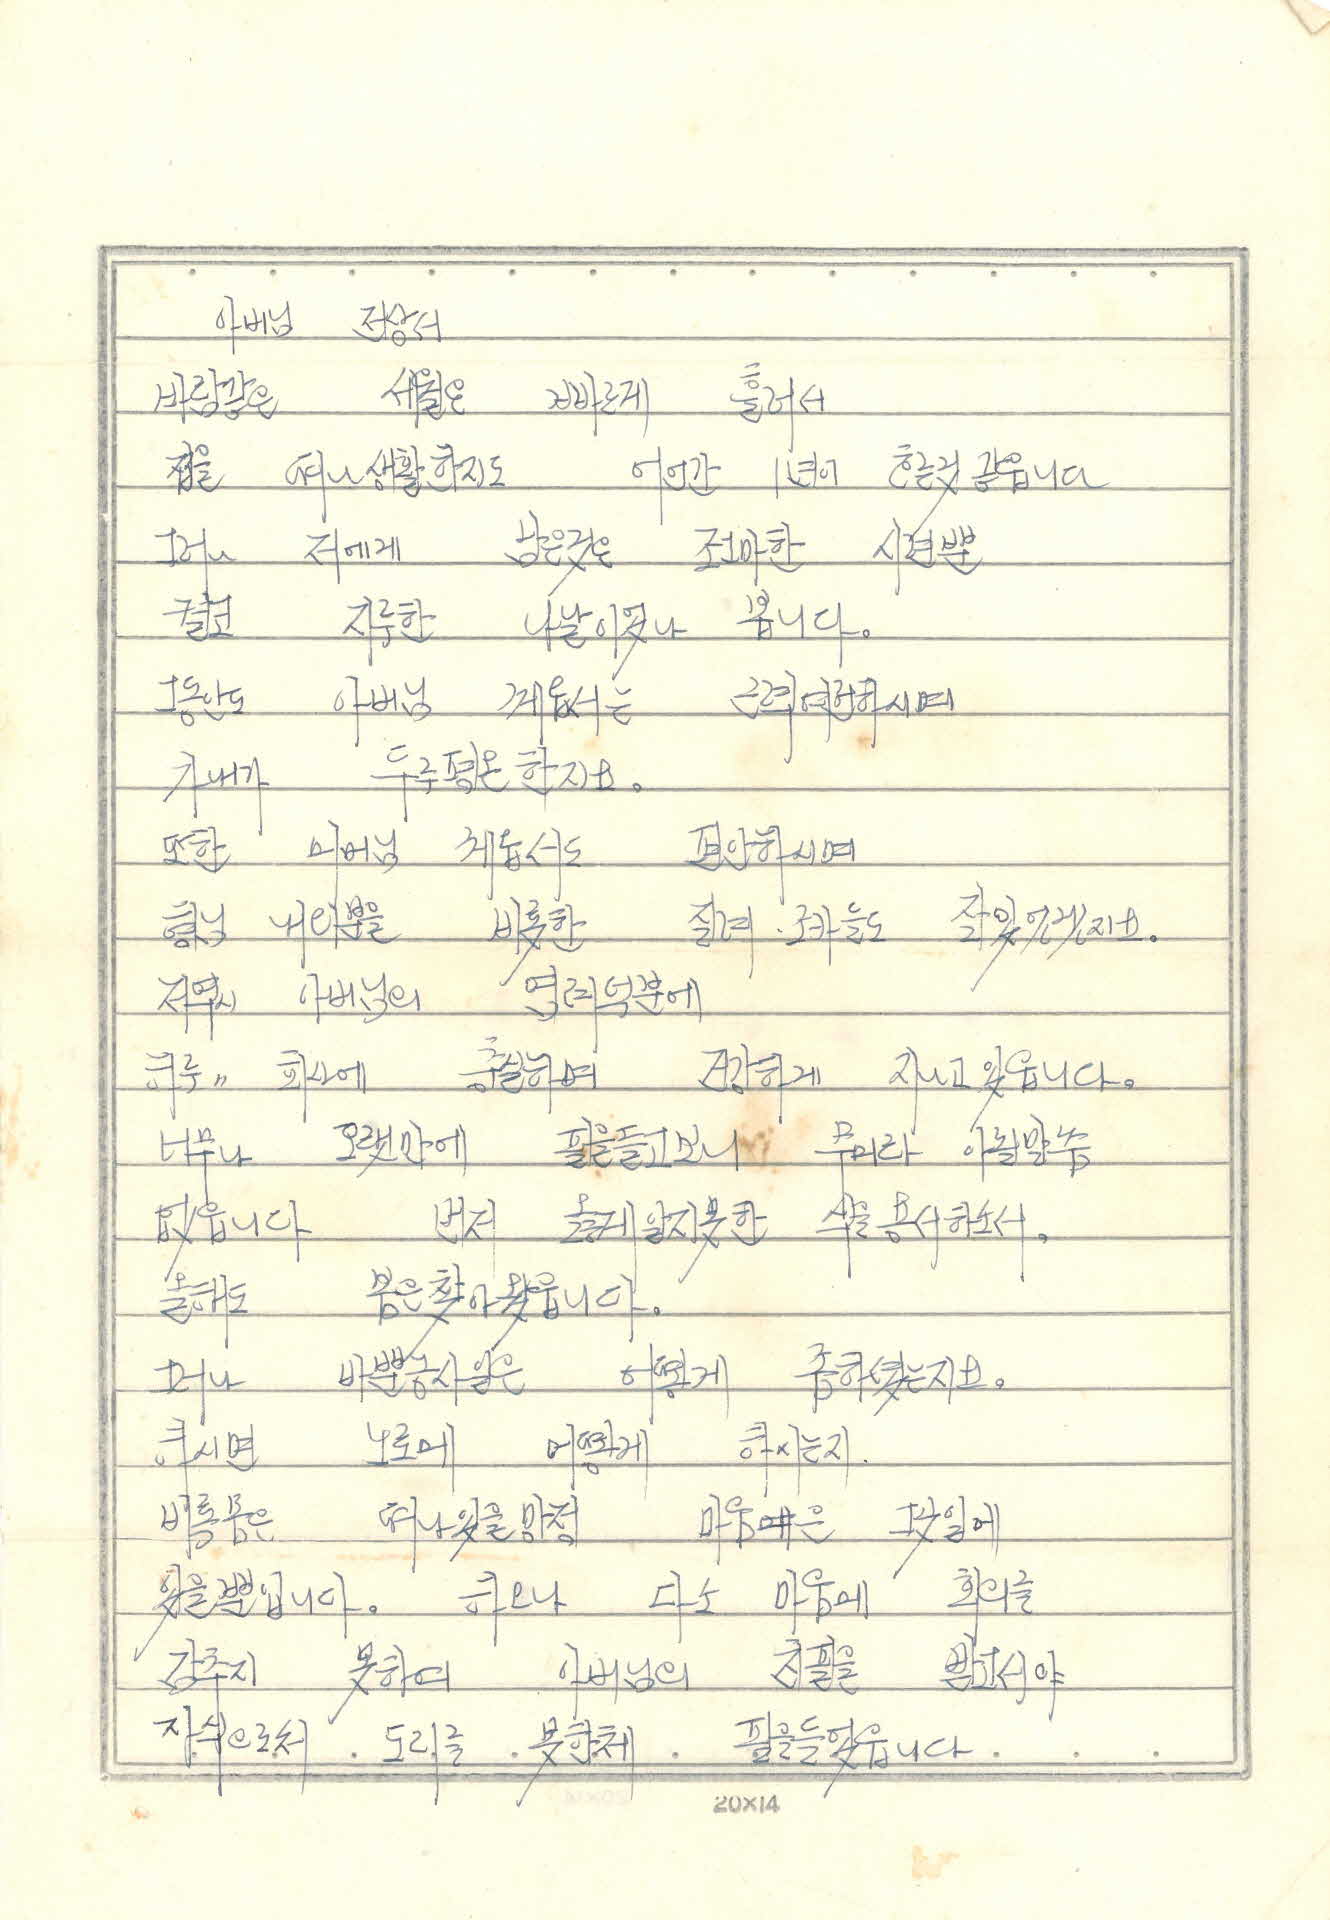 아버님 전상서
바람같은 세월은 겁바르게 흘러서
집을 떠나 생활한지도 어언간 1년이 흐른것 같읍니다
그러나 저에게 남은것은 조그마한 시련뿐
결코 지루한 나날이었나 봅니다.
그동안도 아버님 께옵서는 근력여전하시며
가내가 두루 평온한지요.
또한 어머님 께옵서도 편안하시며
형님 내외분을 비롯한 질려. 조카들도 잘있겠지요.
저역시 아버님의 염려덕분에
하루〃 회사에 충실하며 건강하게 지나고 있읍니다.
너무나 오랫만에 필을들고보니 무어라 아뢸말씀
없읍니다 먼저 옳게알지못한 식을 용서하소서.
올해도 봄은찾아 왔읍니다.
그러나 바쁜농사일은 어떻게 좀하셨는지요.
하시면 노르메 어떻게 하시는지.
비록몸은 떠나있을망정 마음많은 그곳일에
있을뿐입니다. 하오나 다소 마음에 회의를
감추지 못하며 아버님의 친필을 받고서야
자식으로서 도리를 못한체 필을들었읍니다
20×14